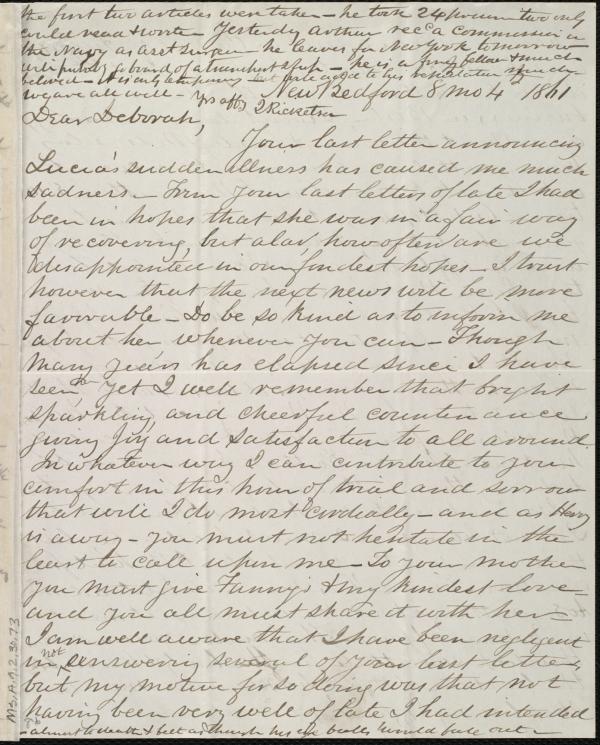 the first two articles were taken – he took 24 prisoners two only
could read & write Yesterday Arthur recd a commission in
the Navy as asst surgeon he leaves for New York tomorrow
beloved –
we are all well – Yrs affly J Ricketson New Bedford 8 mo 4 1861
Dear Deborah,
Your last letter announcing
Lucia's sudden illness has caused me much
sadness – From your last letters of late I had
been in hopes that she was in a fair way
of recovering, but alas, how often are we
disappointed in our fondest hopes – I trust
however that the next news will be more
favorable – Do be so kind as to inform me
about her whenever you can – Though
many years has elapsed since I have
seen her, yet I well remember that bright
sparkling and cheerful countenance
giving joy and satisfaction to all around.
In whatever way I can contribute to your
comfort in this hour of trial and sorrow
that will I do most cordially – and as Henry
is away – you must not hesitate in the
least to call upon me – To your mother
you must give Fanny's & my kindest love –
and you all must share it with her –
I am well aware that I have been negligent
in not answering several of your last letters,
but my motive for so doing was that not
having been very well of late I had intended
almost to death & felt as though his eye balls would fade out –
MS.A.9.2.30.73